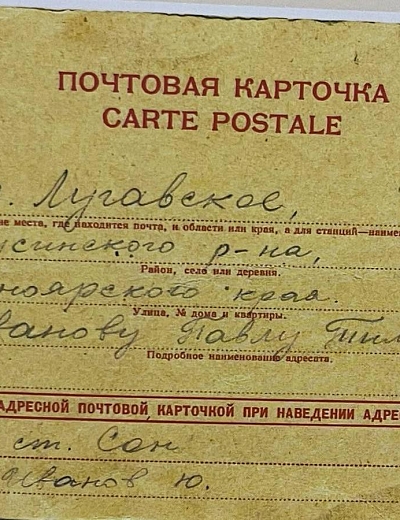 ПОЧТОВАЯ КАРТОЧКА
CARTE POSTALE
с. Лугавское,
не места, где находится почта, и области или края, а для станций—наиме
усинского р-на,
Район, село или деревня.
ноярского края.
Улица, № дома и квартиры.
ванову Павлу Тим
Подробное наименование адресата.
АДРЕСНОЙ ПОЧТОВОЙ КАРТОЧКОЙ ПРИ НАВЕДЕНИИ АДРЕ
ст. Сон
Иванов Ю.